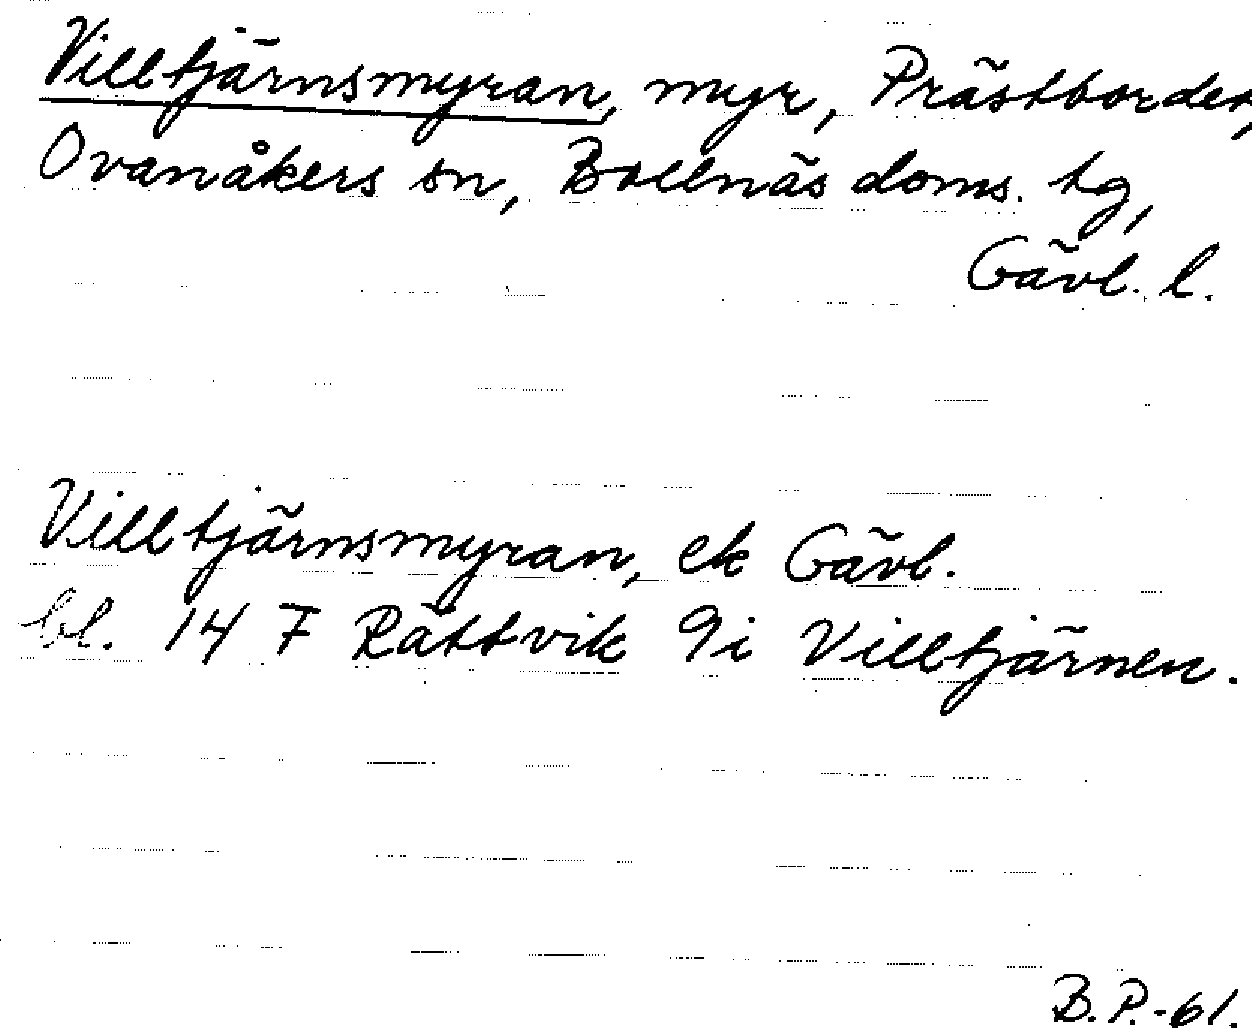 Villtjärnsmyran, myr, Prästbordet,
Ovanåkers sn, Bollnäs doms. tg,
Gävl. l.
Villtjärnsmyran, ek Gävl.
bl. 14 F Rättvik 9i Villtjärnen.
B.P.-61.